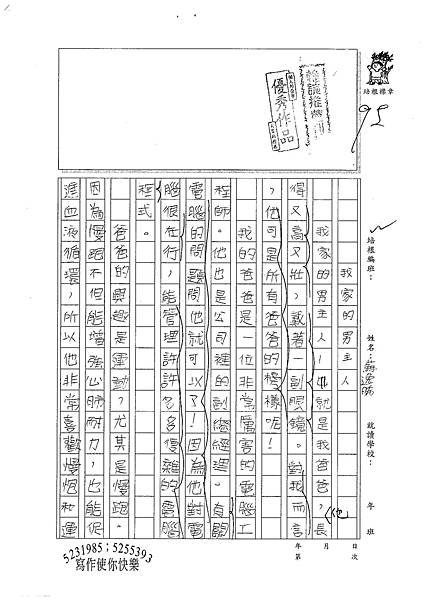 培根標章
優秀作品
95
培根編班：
姓名：
就讀學校：
年 班
年 月 日
第 次
我家的男主人
我家的男主人！也就是我爸爸，他長
得又高又壯，戴著一副眼鏡。對我而言
，他可是所有爸爸的榜樣呢！
我的爸爸是一位非常厲害的電腦工
程師。他也是公司裡的副總經理。有關
電腦的問題問他就可以了！因為他對電
腦很在行，能管理許許多多複雜的電腦
程式。
爸爸的興趣是運動，尤其是慢跑。
因為慢跑不但能增強心肺耐力，也能促
進血液循環，所以他非常喜歡慢跑和運
5231985；5255393
寫作使你快樂